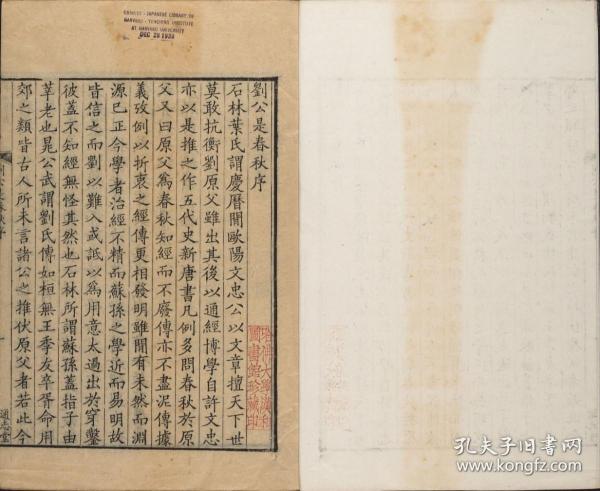 CHINESE - JAPANESE LIBRARY OF
HARVARD - YENCHING INSTITUTE
AT HARVARD UNIVERSITY
DEC 28 1933
劉公是春秋序
石林葉氏謂慶曆間歐陽文忠公以文章擅天下世
莫敢抗衡劉原父雖出其後以通經博學自許文忠
亦以是推之作五代史新唐書凡例多問春秋於原
父又曰原父爲春秋知經而不廢傳亦不盡泥傳據
義攷例以折衷之經傳更相發明雖間有未然而淵
源已正今學者治經不精而蘇孫之學近而易明故
皆信之而劉以難入或詆以爲用意太過出於穿鑿
彼蓋不知經無怪其然也石林所謂蘇孫蓋指子由
莘老也晁公武謂劉氏傳如桓無王季友卒胥命用
郊之類皆古人所未言諸公之推伏原父者若此今
通志堂
哈佛大學漢和
圖書館珍藏印
孔夫子旧书网
www.kongfz.com